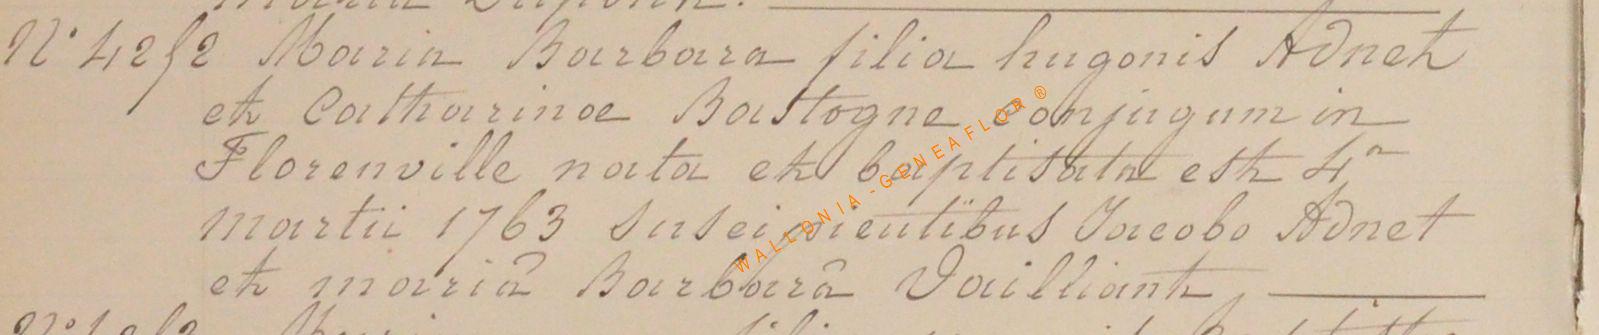 N° 42f2 Maria Barbara filia hugonis Adnet
et Catharinae Bastogne conjugum in
Florenville nata et baptisata est 4a
martii 1763 suscipientibus Jacobo Adnet
et mariâ Barbarâ Vailliant
WALLONIA-GENEAFLOR®